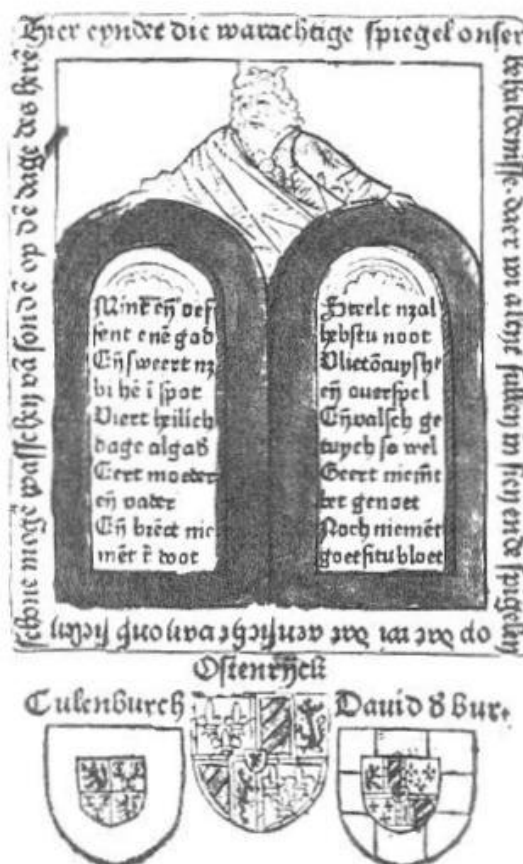 Hier eyndet die warachtige spiegel onser
behaldenisse. daer wi altijt sullen in sien ende spigelen
op dat wi der
schone mogē wasschen vā sondē op dē dage des herē
Mint eñ oef
fent enē god
Eñ sweert nz
bi hē ī spot
Viert heilich
dage algad
Eert moeder
eñ vader
Eñ brēct nie
mēt t̄ doot
Steelt nz al
hebstu noot
Vliet ōcuysh'
eñ overspel
Eñ valsch ge
tuych so wel
Geert niemt
bet genoet
Noch niemēt
goet situ bloet
Ostenrijck
Culenburch
David & Bur.